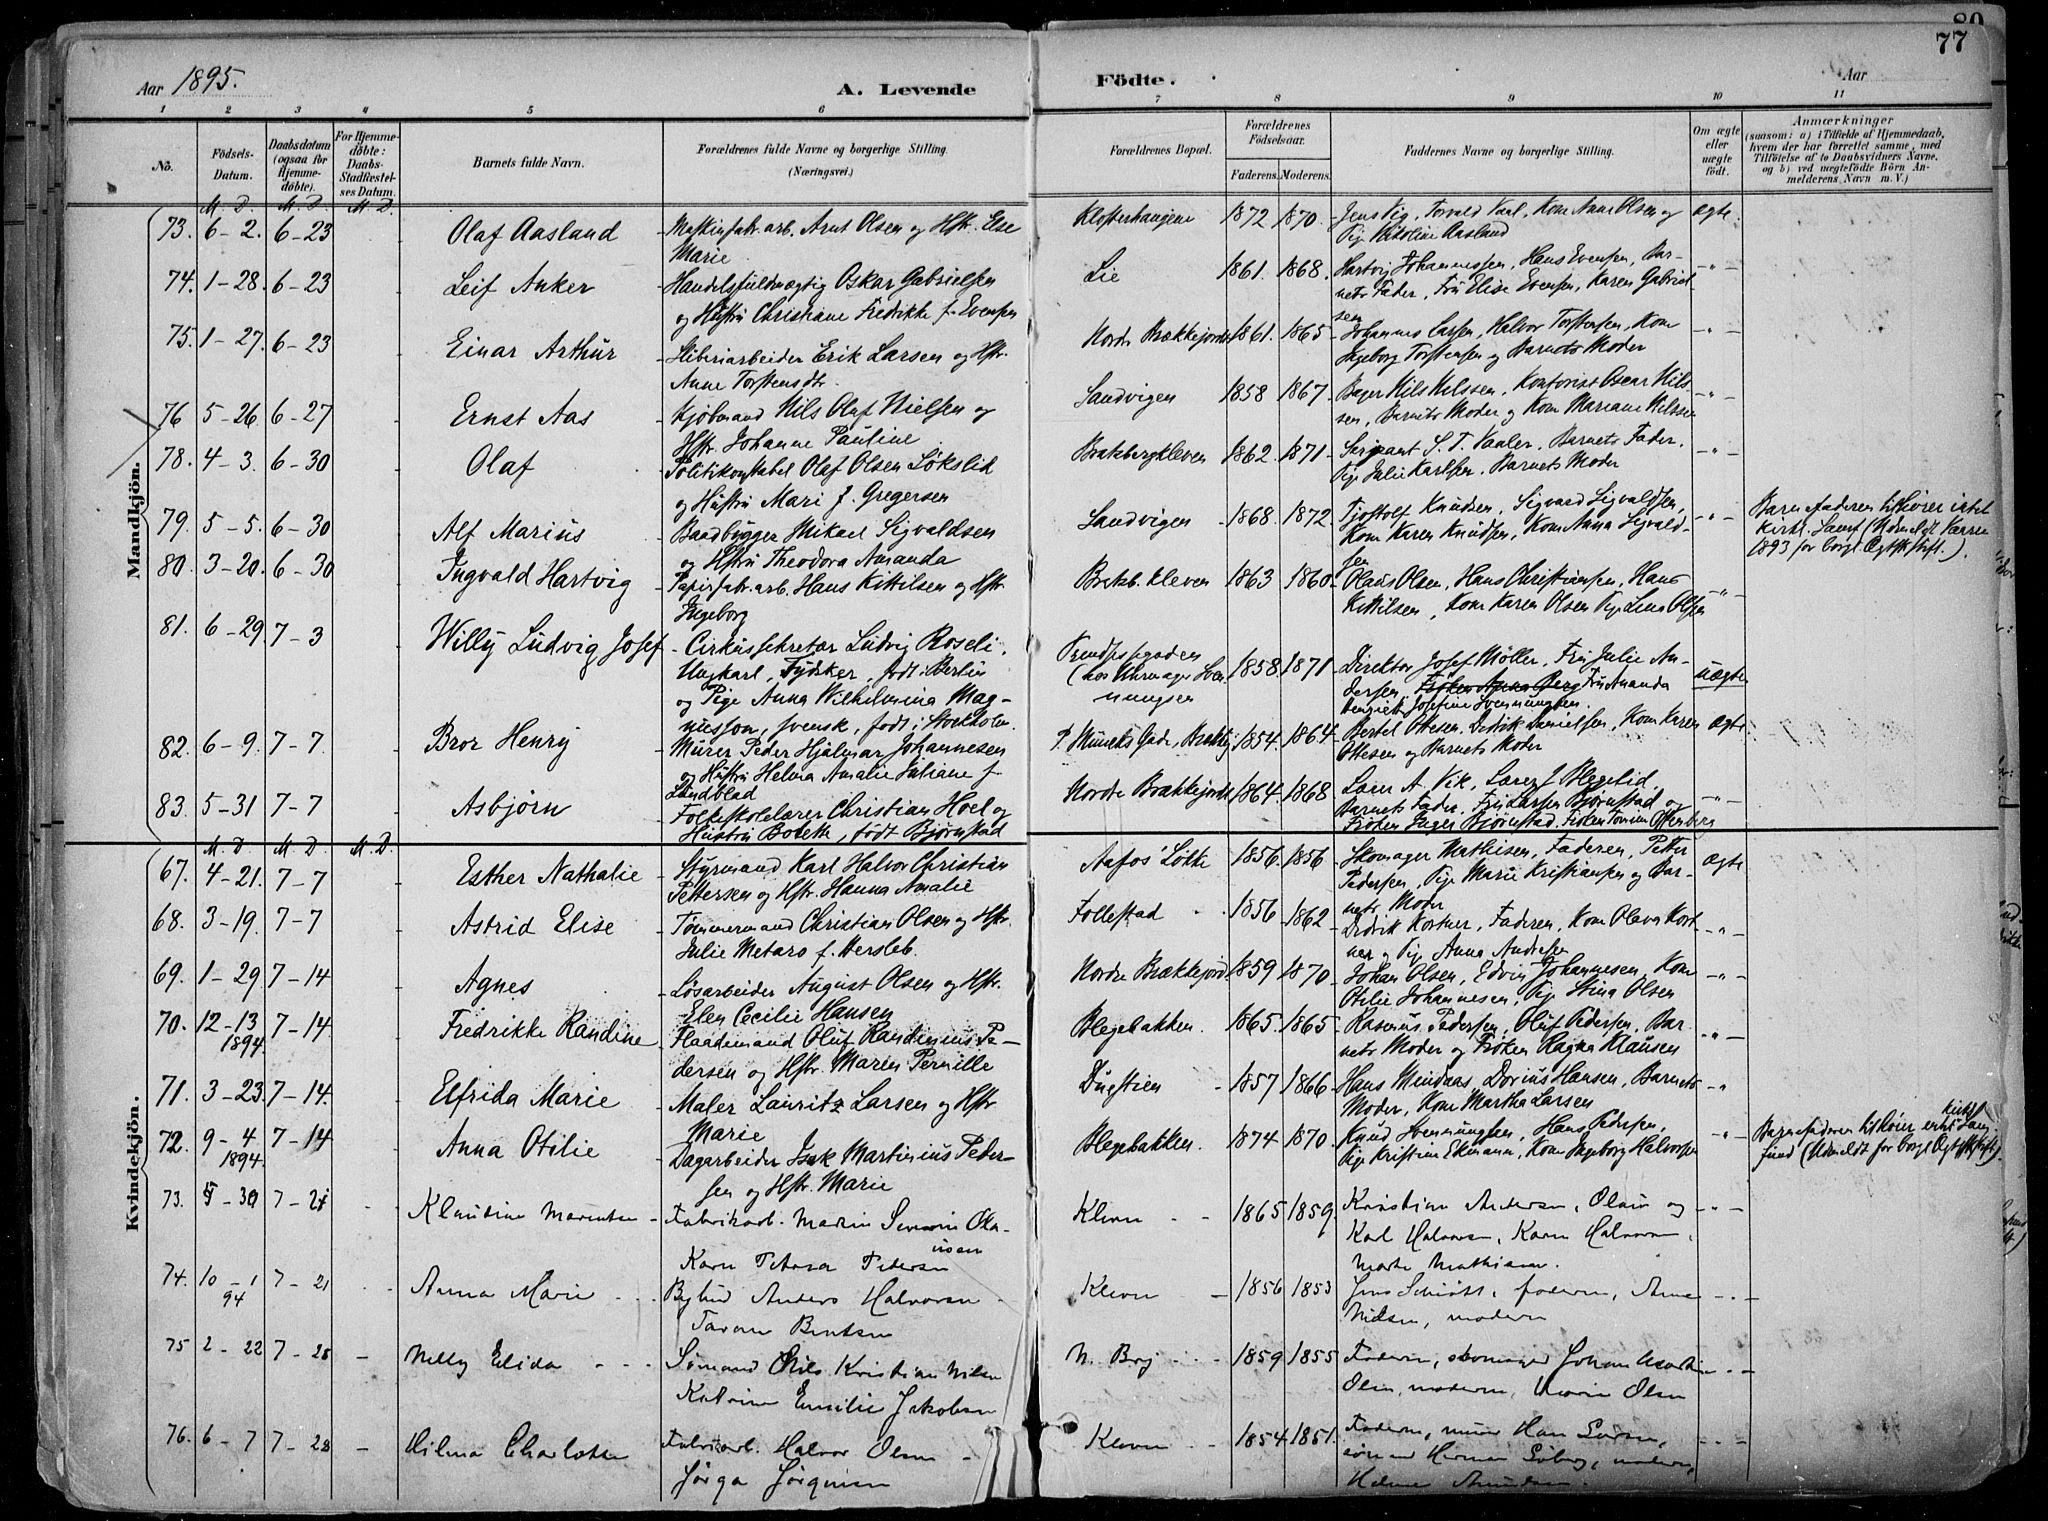 80
77
Aar 1895.
A. Levende
Födte.
Aar
1 2 3 4 5 6 7 8 9 10 11
No.
Födsels-Datum.
Daabsdatum (ogsaa for Hjemmedöbte).
For Hjemmedöbte: Daabs-Stadfæstelses Datum.
Barnets fulde Navn.
Forældrenes fulde Navne og borgerlige Stilling.
(Næringsvei.)
Forældrenes Bopæl.
Forældrenes Födselsaar.
Faderens. Moderens.
Faddernes Navne og borgerlige Stilling.
Om ægte eller uægte födt.
Anmærkninger
(saasom: a) i Tilfælde af Hjemmedaab, hvem der har forrettet samme, med Tilföielse af to Daabsvidners Navne, og b) ved uægtefödte Börn Anmelderens Navn m. V.)
M. D. M. D. M. D.
Mandkjön.
73. 6-2. 6-23 Olaf Aasland Maskinfabr.arb. Arnt Olsen og Hstr. Else
Marie
Klosterhaugene 1872 1870 Jens Vig, Torvald Vaal, Kone Anne Olsen og
Pige Nikoline Aasland
ægte.
74. 1-28. 6-23 Leif Anker Handelsfuldmægtig Oskar Gabrielsen
og Hustru Christiane Fredrikke f. Evensen
Lie 1861. 1868. Hartvig Johannessen, Hans Evensen, Bar-
nets Fader, Fru Elise Evensen, Karen Gabriel-
sen
-"-
75. 1-27. 6-23 Einar Arthur Sliberiarbeider Erik Larsen og Hstr.
Anne Torstensdtr.
Nordre Brækkejorde 1861. 1865 Johannes Larsen, Halvor Torstensen, Kone
Ingeborg Torstensen og Barnets Moder
-"-
76 5-26 6-27 Ernst Aas Kjøbmand Nils Olaf Nielsen og
Hstr. Johanne Pauline
Sandvigen 1858 1867 Bager Nils Nilssen, Kontorist Oscar Nils
sen, Barnets Moder og Kone Mariane Nilssen
-"-
78. 4-3. 6-30 Olaf Politikonstabel Olaf Olsen Løkslid
og Hustru Mari f. Gregersen
Bratsbergkleven 1862. 1871 Sergeant S. T. Vaaler, Barnets Fader.
Pige Julie Karlsen, Barnets Moder
-"-
79. 5-5. 6-30 Alf Marius Baadbygger Mikael Sigvaldsen
og Hstru Theodora Amanda
Sandvigen 1868. 1872 Tjostolf Knudsen, Sigvard Sigvaldsen,
Kone Karen Knudsen, Kone Anna Sigvald-
sen
-"-
Barnefaderen tilhører intet
kirkl. Samf (Udmeldt
1893 for borgl. Ægtsk.stift.).
80. 3-20. 6-30 Ingvald Hartvig Papirfabr.arb. Hans Kittilsen og Hstr
Ingeborg
Bratsb.kleven 1863 1860 Olaus Olsen, Hans Christiansen, Hans
Kittilsen, Kone Karen Olsen Pige Lina Olsen
-"-
81. 6-29 7-3 Willy Ludvig Josef Cirkussekretær Ludvig Roseli,
Ungkarl, Tydsker, født i Berlin
og Pige Anna Wilhelmina Mag-
nusson, svensk, født i Stockholm.
(hos Uhrmager Sven-
nungsen
1858. 1871 Direktør Josef Møller, Fru Julie An-
dersen, Frøken Anna Berg Fru Amanda
Henriette Josefine Svennungsen.
uægte
82. 6-9. 7-7. Bror Henry Murer Peder Hjalmar Johannesen
og Hustru Helma Amalie Juliane f.
Lundblad
P. Munchs Gade, Brækkej. 1854. 1864 Bertel Ottesen, Didrik Danielsen, Kone Karen
Ottesen og Barnets Moder
ægte
83. 5-31 7-7 Asbjørn Folkeskolelærer Christian Hoel og
Hustru Bolette, født Bjørnstad
Nordre Brækkejorde 1864. 1868 Lærer A. Vik, Lærer J. Blegelid,
Barnets Fader, Fru Larsen Bjørnstad og
Frøken Inger Bjørnstad,
-"-
M. D. M. D. M. D.
Kvindekjön.
67. 4-21. 7-7 Esther Nathalie Styrmand Karl Halvor Christian
Pettersen og Hstr. Hanna Amalie
Aafos' Løkke 1856. 1856 Skomager Mathisen, Faderen, Petter
Pedersen, Pige Marie Kristiansen og Bar-
nets Moder
ægte
68. 3-19. 7-7 Astrid Elise Tømmermand Christian Olsen og Hstr.
Julie Metaro f. Hersleb.
Follestad 1856 1862 Didrik Kortner, Faderen, Kone Oleva Kort
ner og Pige Anna Andresen
-"-
69. 1-29. 7-14 Agnes Løsarbeider August Olsen og Hstr.
Elen Cecilie Hansen
Nordre Brækkejord. 1859 1870 Johan Olsen, Edvin Johannesen, Kone
Otilie Johannesen, Pige Stina Olsen
-"-
70. 12-13 1894 7-14. Fredrikke Randine Flaademand Oluf Randinius Pe-
dersen og Hstr. Maren Pernille
Blegebakken. 1865 1865 Rasmus Pedersen, Oluf Pedersen, Bar-
nets Moder og Frøken Ragna Klausen
-"-
71. 3-23. 7-14. Elfrida Marie Maler Lauritz Larsen og Hstr
Marie
Dugstien 1857 1866 Hans Mindaas, Dorius Hansen, Barnets
Moder, Kone Martha Larsen
-"-
72. 9-4 1894. 7-14 Anna Otilie Dagarbeider Isak Martinius Peder-
sen og Hstr. Marie
Blegebakken. 1874 1870. Knud Svennungsen, Hans Pedersen,
Pige Kristine Ekmann, Kone Ingeborg Halvorsen
-"-
Barnefaderen tilhører intet kirkel. Sam-
fund (Udmeldt for borgl. Ægtsk.stift.).
73. 5-30 7-21 Klaudine Marentse Fabrikarb. Martin Severin Ola-
usen
Karen Petrea Pedersen
Kleven 1865 1859. Kristian Andersen, Olaus og
Karl Halvorsen, Karen Halvorsen,
Marte Mathisen.
-"-
74. 10-1 94 7-21 Anna Marie Bybud Anders Halvorsen
Taran Bentsen
Kleven 1856 1853 Jens Schiøtt, faderen, Anne
Nilsen, moderen
-"-
75 2-22 7-28 Nelly Elida Sømand Nils Kristian Nilsen
Katrine Emilie Jakobsen
N. Brj 1859 1855 Faderen, skomager Johan Martin
Olsen, moderen, Maria Olsen
-"-
76. 6-7 7-28 Hilma Charlotte Fabrikarb. Halvor Olsen
Jørga Jørgensen
Kleven 1854 1851. Faderen, murer Hans Larsen,
sømand Herman Solberg, moderen,
Helene Amundsen.
-"-